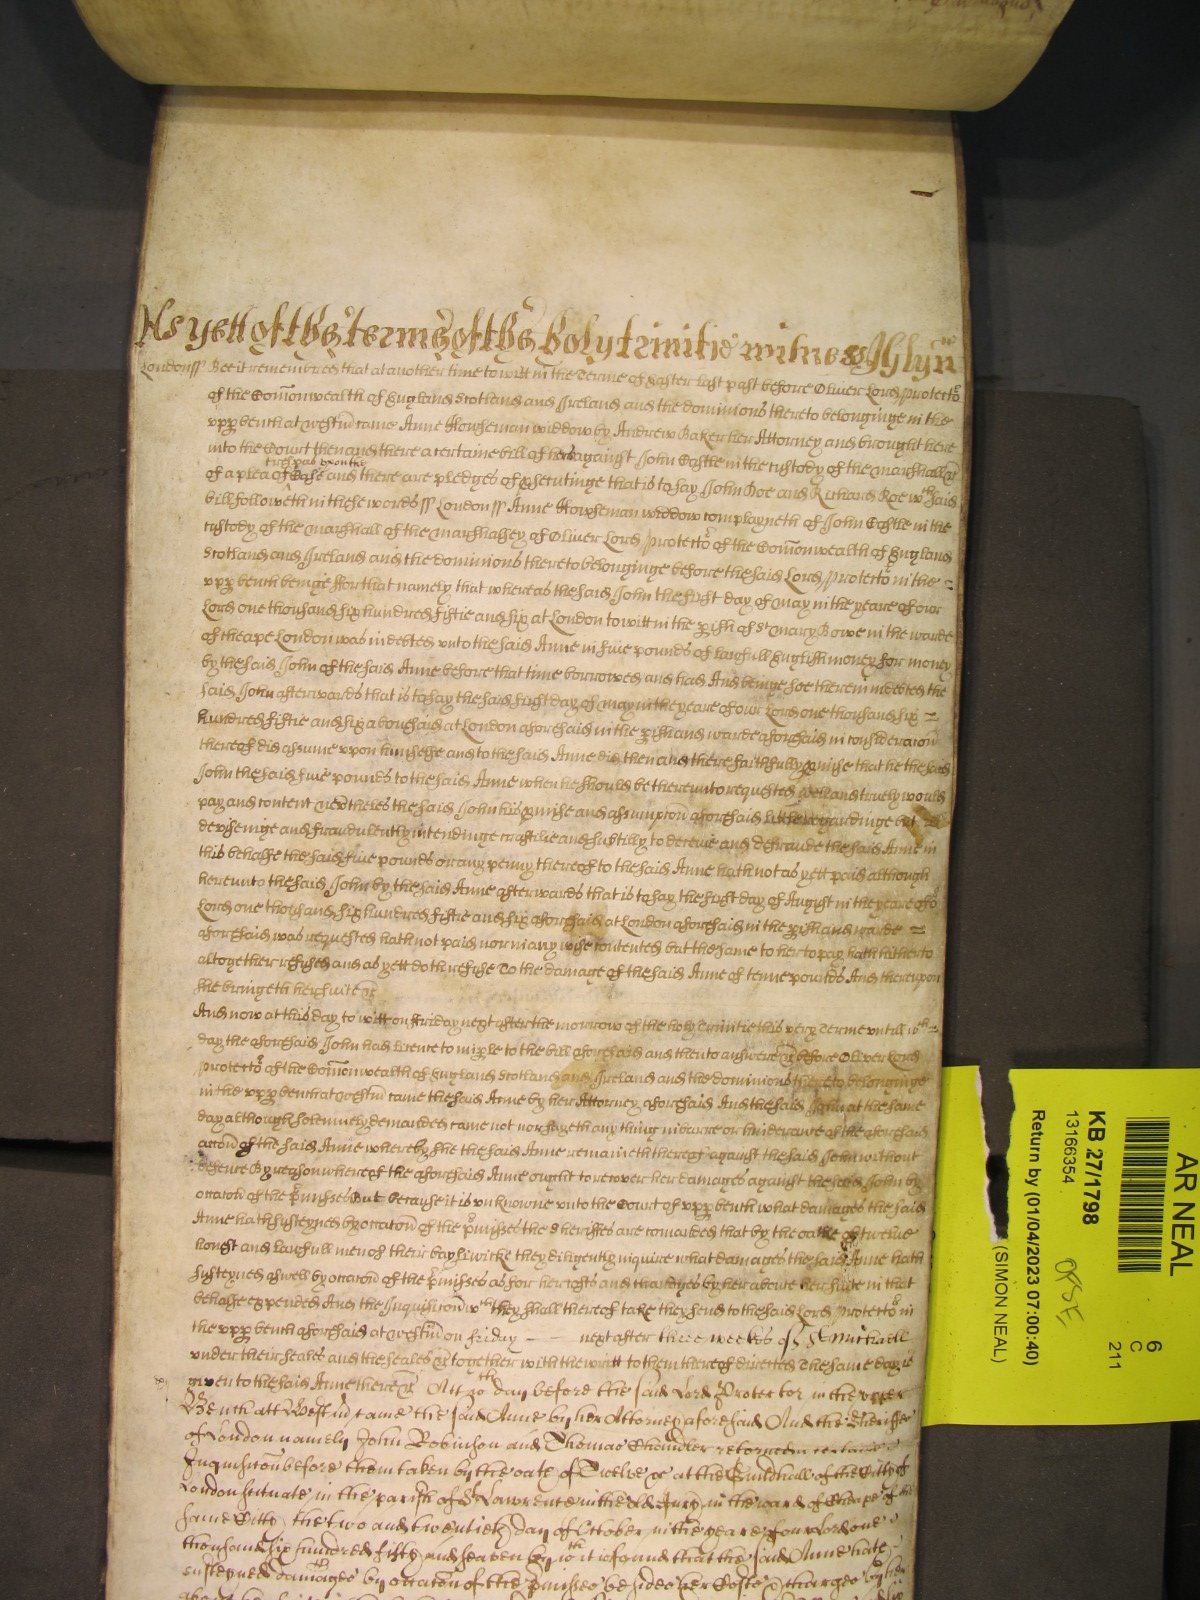 As yett of the terme of the holy trinitie witnes Jh lyn
London ss Bee it remembred that at another time to witt in the Terme of Easter last past before Oliver Lord Protector
of the Comonwealth of England Scotland and Ireland and the dominions thereto belonginge in the
upp bench at Westm came Anne Howseman widdow by Andrew Baker her Attorney and brought here
into the Court then and there a certaine bill of hers against John Castle in the custody of the marshall &c
trespas upon the
of a plea of Case and there are pledges of prosecutinge that is to say John Doe and Richard Roe wch said
bill followeth in these words ss London ss Anne Howseman widdow complayneth of John Castle in the
custody of the marshall of the marshalsey of Oliver Lord Protector of the Comonwealth of England
Scotland and Ireland and the dominions thereto belonginge before the said Lord Protector in the =
upp bench beinge ffor that namely that whereas the said John the first day of May in the yeare of our
Lord one thousand six hundred fiftie and six at London to witt in the pish of St Mary Bowe in the warde
of cheape London was indebted unto the said Anne in five pounds of lawfull English money for money
by the said John of the said Anne before that time borrowed and had And beinge soe therein indebted the
said John afterwards that is to say the said first day of May in the yeare of our Lord one thousand six =
hundred fiftie and six abovesaid at London aforesaid in the pish and warde aforesaid in consideracon
thereof did assume upon himselfe and to the said Anne did then and there faithfully pmise that he the said
John the said five pounds to the said Anne when he should be thereunto requested well and truely would
pay and content Nevertheles the said John his pmise and assumpcon aforesaid little regardinge but
devisinge and fraudulently intendinge craftilie and subtilly to deceive and defraude the said Anne in
this behalfe the said five pounds or any penny thereof to the said Anne hath not as yett paid although
hereunto the said John by the said Anne afterwards that is to say the first day of August in the yeare of or
Lord one thousand six hundred fiftie and six aforesaid at London aforesaid in the pish and warde =
aforesaid was requested hath not paid nor in any wise contented but the same to her to pay hath hitherto
altogether refused and as yett doth refuse To the damage of the said Anne of tenne pounds And thereupon
she bringeth her suite &c
And now at this day to witt on ffriday next after the morrow of the holy Trinitie this very Terme untill wch =
day the aforesaid John had licence to imple to the bill aforesaid and then to answere &c before Oliver Lord
Protector of the Comonwealth of England Scotland and Ireland and the dominions thereto belonginge
in the upp bench at Westm came the said Anne by her Attorney aforesaid And the said John at the same
day although solemnely demanded came not nor sayeth any thing in barre or hinderance of the aforesaid
accon of the said Anne whereby she the said Anne remaineth thereof against the said John without
defence By reason whereof the aforesaid Anne ought to recover her damages against the said John by
occacon of the pmisses But because it is unknowne unto the Court of upp bench what damages the said
Anne hath susteyned by occacon of the pmisses the sheriffes are comanded that by the oathe of twelve
honest and lawfull men of their bayliwicke they diligently inquire what damages the said Anne hath
susteyned aswell by occacon of the pmisses as for her costs and charges by her about her suite in that
behalfe expended And the Inquisicon wch they shall thereof take they send to the said Lord Protector in
the upp bench aforesaid at Westm on friday - - next after three weekes of St Michaell
under their seales and the seales &c together with the writt to them thereof directed The same day is
given to the said Anne there &c Att wch day before the said Lord Protector in the upper
Bench att Westm came the said Anne by her Attorney aforesaid And the Sheriffes
of London namely John Robinson and Thomas Chandler returned a certaine
Inquisicon before them taken by the oath of Twelve &c at the Guildhall of the Citty of
London situate in the parish of St Lawrence in the old Jury in the ward of Cheape of the
same Citty the two and twentieth day of October in the yeare of our Lord one
thousand six hundred fifty and seaven by wch it is found that the said Anne hath
susteyned damages by occacon of the pmisses besides her Costs & charges by her
AR NEAL
6
C
211
KB 27/1798
13166354
Return by (01/04/2023 07:00:40)
(SIMON NEAL)
OFSE